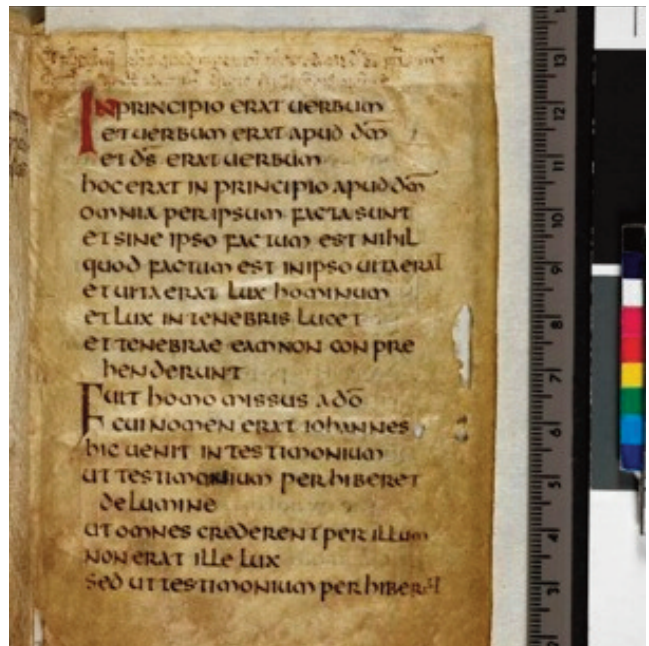 IN PRINCIPIO ERAT UERBUM
ET UERBUM ERAT APUD DM̄
ET DS̄ ERAT UERBUM
HOC ERAT IN PRINCIPIO APUD DM̄
OMNIA PER IPSUM FACTA SUNT
ET SINE IPSO FACTUM EST NIHIL
QUOD FACTUM EST IN IPSO UITA ERAT
ET UITA ERAT LUX HOMINUM
ET LUX IN TENEBRIS LUCET
ET TENEBRAE EAM NON CON PRE
HENDERUNT
FUIT HOMO MISSUS A DŌ
CUI NOMEN ERAT IOHANNES
HIC UENIT IN TESTIMONIUM
UT TESTIMONIUM PERHIBERET
DE LUMINE
UT OMNES CREDERENT PER ILLUM
NON ERAT ILLE LUX
SED UT TESTIMONIUM PERHIBERET
13
12
11
10
9
8
7
6
5
4
3